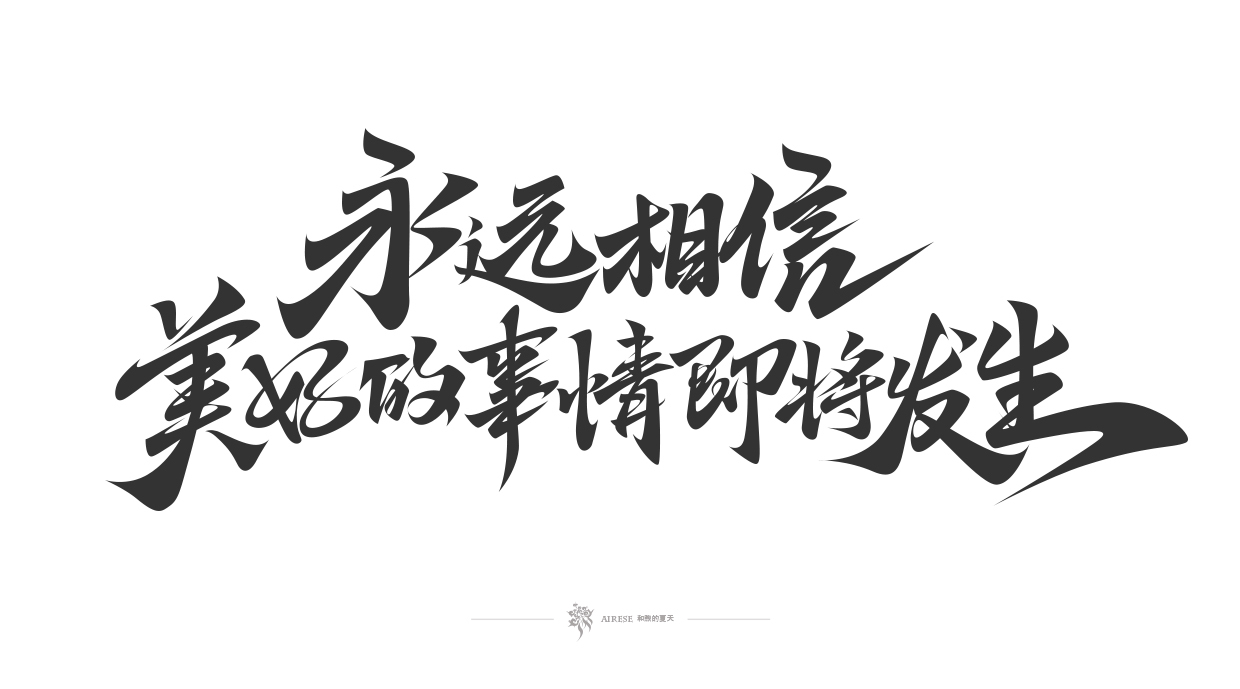 永远相信
美好的事情即将发生
AIRESE 和煦的夏天